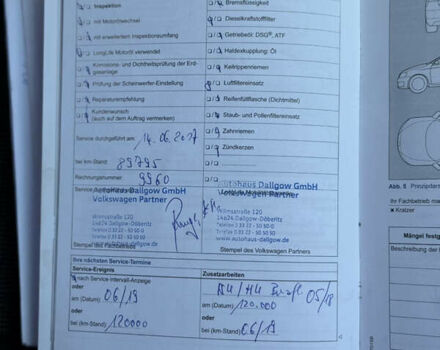 Inspektion
Bremsflüssigkeit
mit Motorölwechsel
Dieselkraftstofffilter
mit erweitertem Inspektionsumfang
Getriebeöl: DSG®, ATF
LongLife Motoröl verwendet
Haldexkupplung: Öl
Korrosions- und Dichtheitsprüfung der Erd-
gasanlage
Keilrippenriemen
Prüfung der Scheinwerfer-Einstellung
Luftfiltereinsatz
Reparaturempfehlung
Reifenfüllflasche (Dichtmittel)
Kundenwunsch
(auch auf dem Auftrag vermerken)
Staub- und Pollenfiltereinsatz
Zahnriemen
Zündkerzen
Service durchgeführt am: 14.06.2017
bei km-Stand: 89795
Rechnungsnummer: 9960
Autohaus Dallgow GmbH
Volkswagen Partner
14624 Dallgow-Döberitz
Stempel des Fachbetriebs
Autohaus Dallgow GmbH
Volkswagen Partner
14624 Dallgow-Döberitz
www.autohaus-dallgow.de
Stempel des Volkswagen Partners
Ihre nächsten Service-Termine
Service-Ereignis
Zusatzarbeiten
nach Service-Intervall-Anzeige
oder
am (Datum) 06/19
oder
bei (km-Stand) 120000
05/18
am (Datum) 120.000
oder
bei (km-Stand) 06/19
Abb. 5
Ihr Fachbetrieb
× Kratzer
Mängel
Beschreibung der